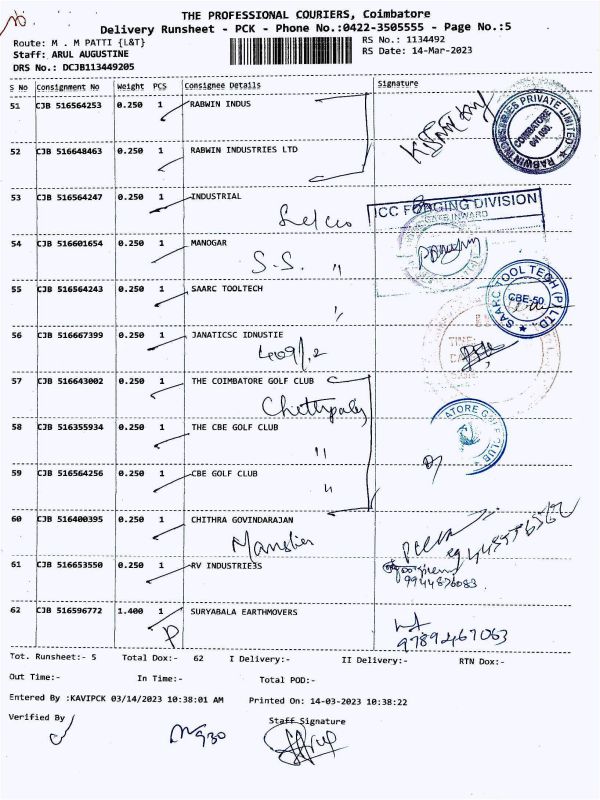 THE PROFESSIONAL COURIERS, Coimbatore
Delivery Runsheet - PCK - Phone No.:0422-3505555 - Page No.:5
Route: M . M PATTI {L&T}
RS No.: 1134492
Staff: ARUL AUGUSTINE
RS Date: 14-Mar-2023
DRS No.: DCJB113449205
S No Consignment No Weight PCS Consignee Details Signature
51 CJB 516564253 0.250 1 RABWIN INDUS
RABWIN INDUSTRIES PRIVATE LIMITED
COIMBATORE
641 090.
52 CJB 516648463 0.250 1 RABWIN INDUSTRIES LTD
53 CJB 516564247 0.250 1 INDUSTRIAL
ICC FORGING DIVISION
54 CJB 516601654 0.250 1 MANOGAR
S.S. "
55 CJB 516564243 0.250 1 SAARC TOOLTECH
SAARC TOOL TECH (P) LTD.
CBE-50
56 CJB 516667399 0.250 1 JANATICSC IDNUSTIE
57 CJB 516643002 0.250 1 THE COIMBATORE GOLF CLUB
58 CJB 516355934 0.250 1 THE CBE GOLF CLUB
"
59 CJB 516564256 0.250 1 CBE GOLF CLUB
"
60 CJB 516400395 0.250 1 CHITHRA GOVINDARAJAN
61 CJB 516653550 0.250 1 RV INDUSTRIE3S
9944876083
62 CJB 516596772 1.400 1 SURYABALA EARTHMOVERS
P
9789267063
Tot. Runsheet:- 5 Total Dox:- 62 I Delivery:- II Delivery:- RTN Dox:-
Out Time:- In Time:- Total POD:-
Entered By :KAVIPCK 03/14/2023 10:38:01 AM Printed On: 14-03-2023 10:38:22
Verified By Staff Signature